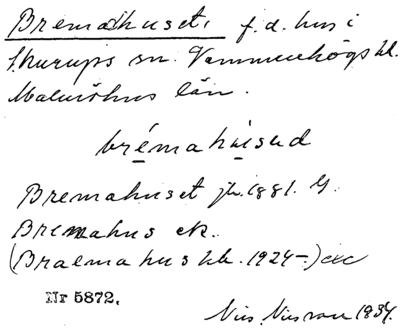 Bremahuset, f.d. hus i
Skurups sn. Vemmenhögs hd.
Malmöhus län.
brémahúsəd
Bremahuset jb. 1881. G.
Bremahus ek.
(Braemahus kb. 1924-)
Nr 5872.
Nils Nilsson 1934.